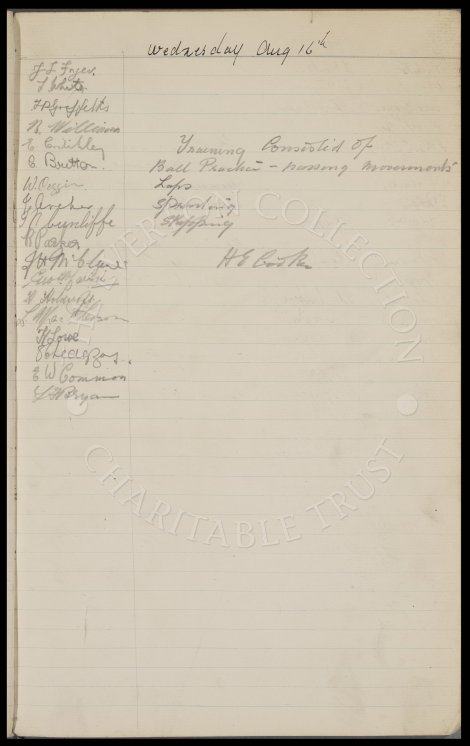 Wednesday Aug 16th
J S Fryer.
T White
F P Griffiths
R. Williams
E Critchley
C Britton.
W Coggin
J Archer
J N Cunliffe
R Parker
J H McClure
Holdcroft
L MacPherson
H Lowe
E W Common
Bryan
Training Consisted of
Ball Practice - passing movements
Laps
Sprinting
Skipping
H E Cooke
THE EVERTON COLLECTION
CHARITABLE TRUST